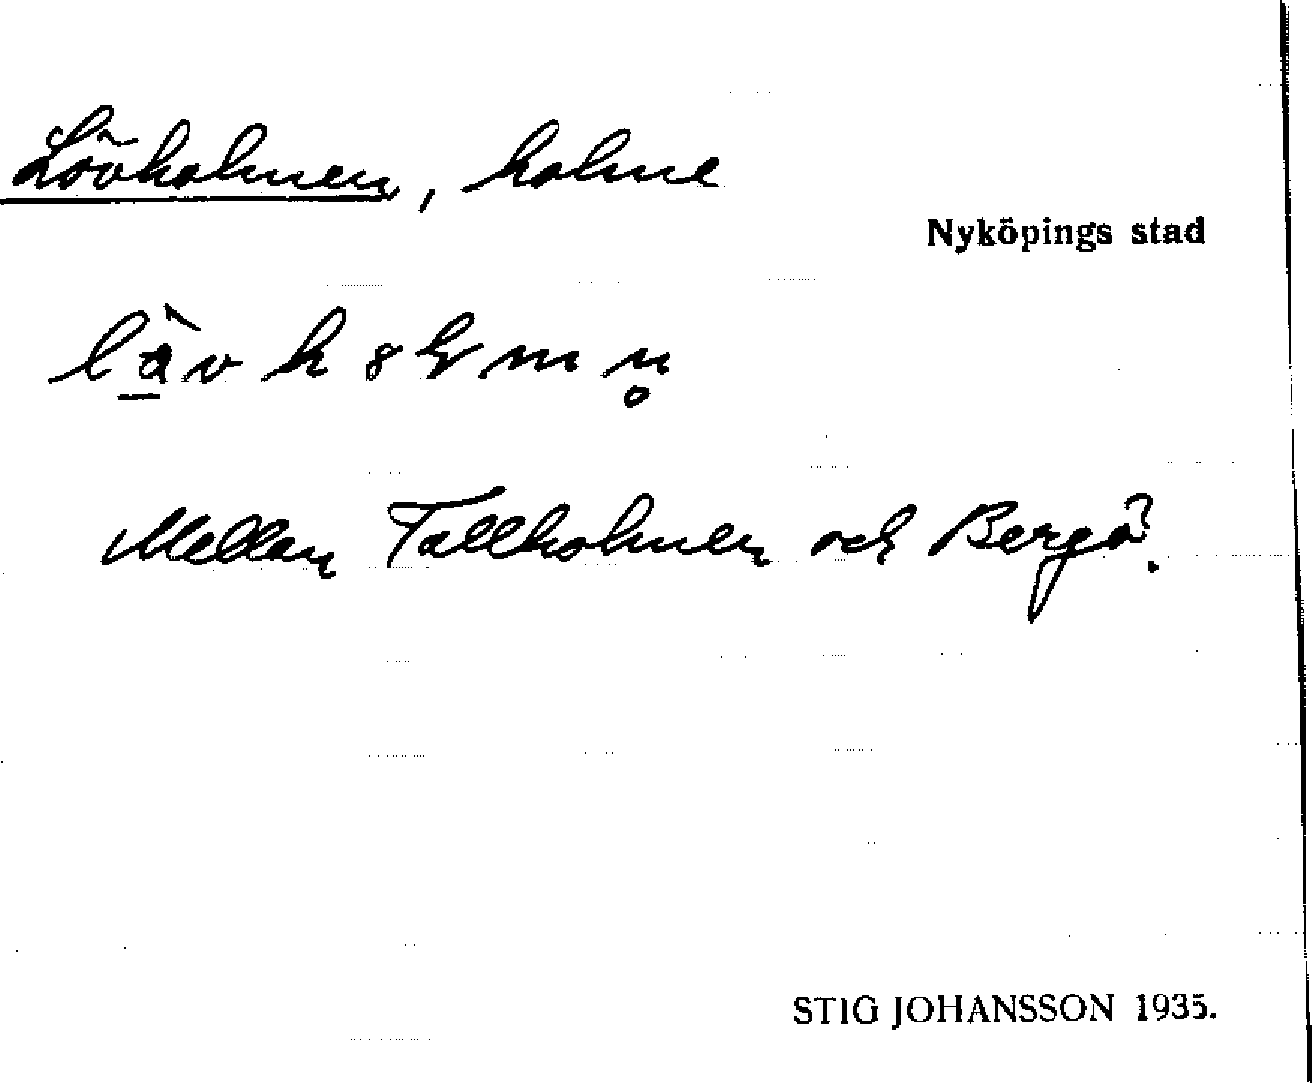 Lövholmen, holme
Nyköpings stad
Mellan Tallholmen och Bergö.
STIG JOHANSSON 1935.